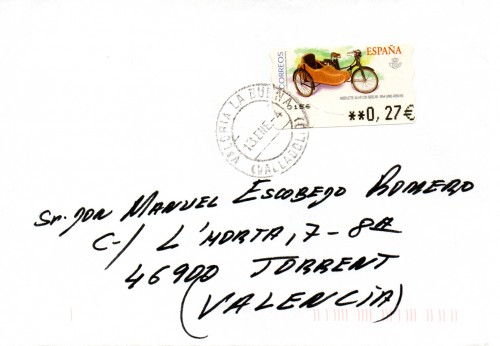 CORREOS
ESPAÑA
0156
**0,27€
VALORIA LA BUENA
13 ENE. 4
(VALLADOLID)
Sr. JON MANUEL ESCOBEJO ROMERO
C-/ L'HORTA, 7-8A
46900 TORRENT
(VALENCIA)